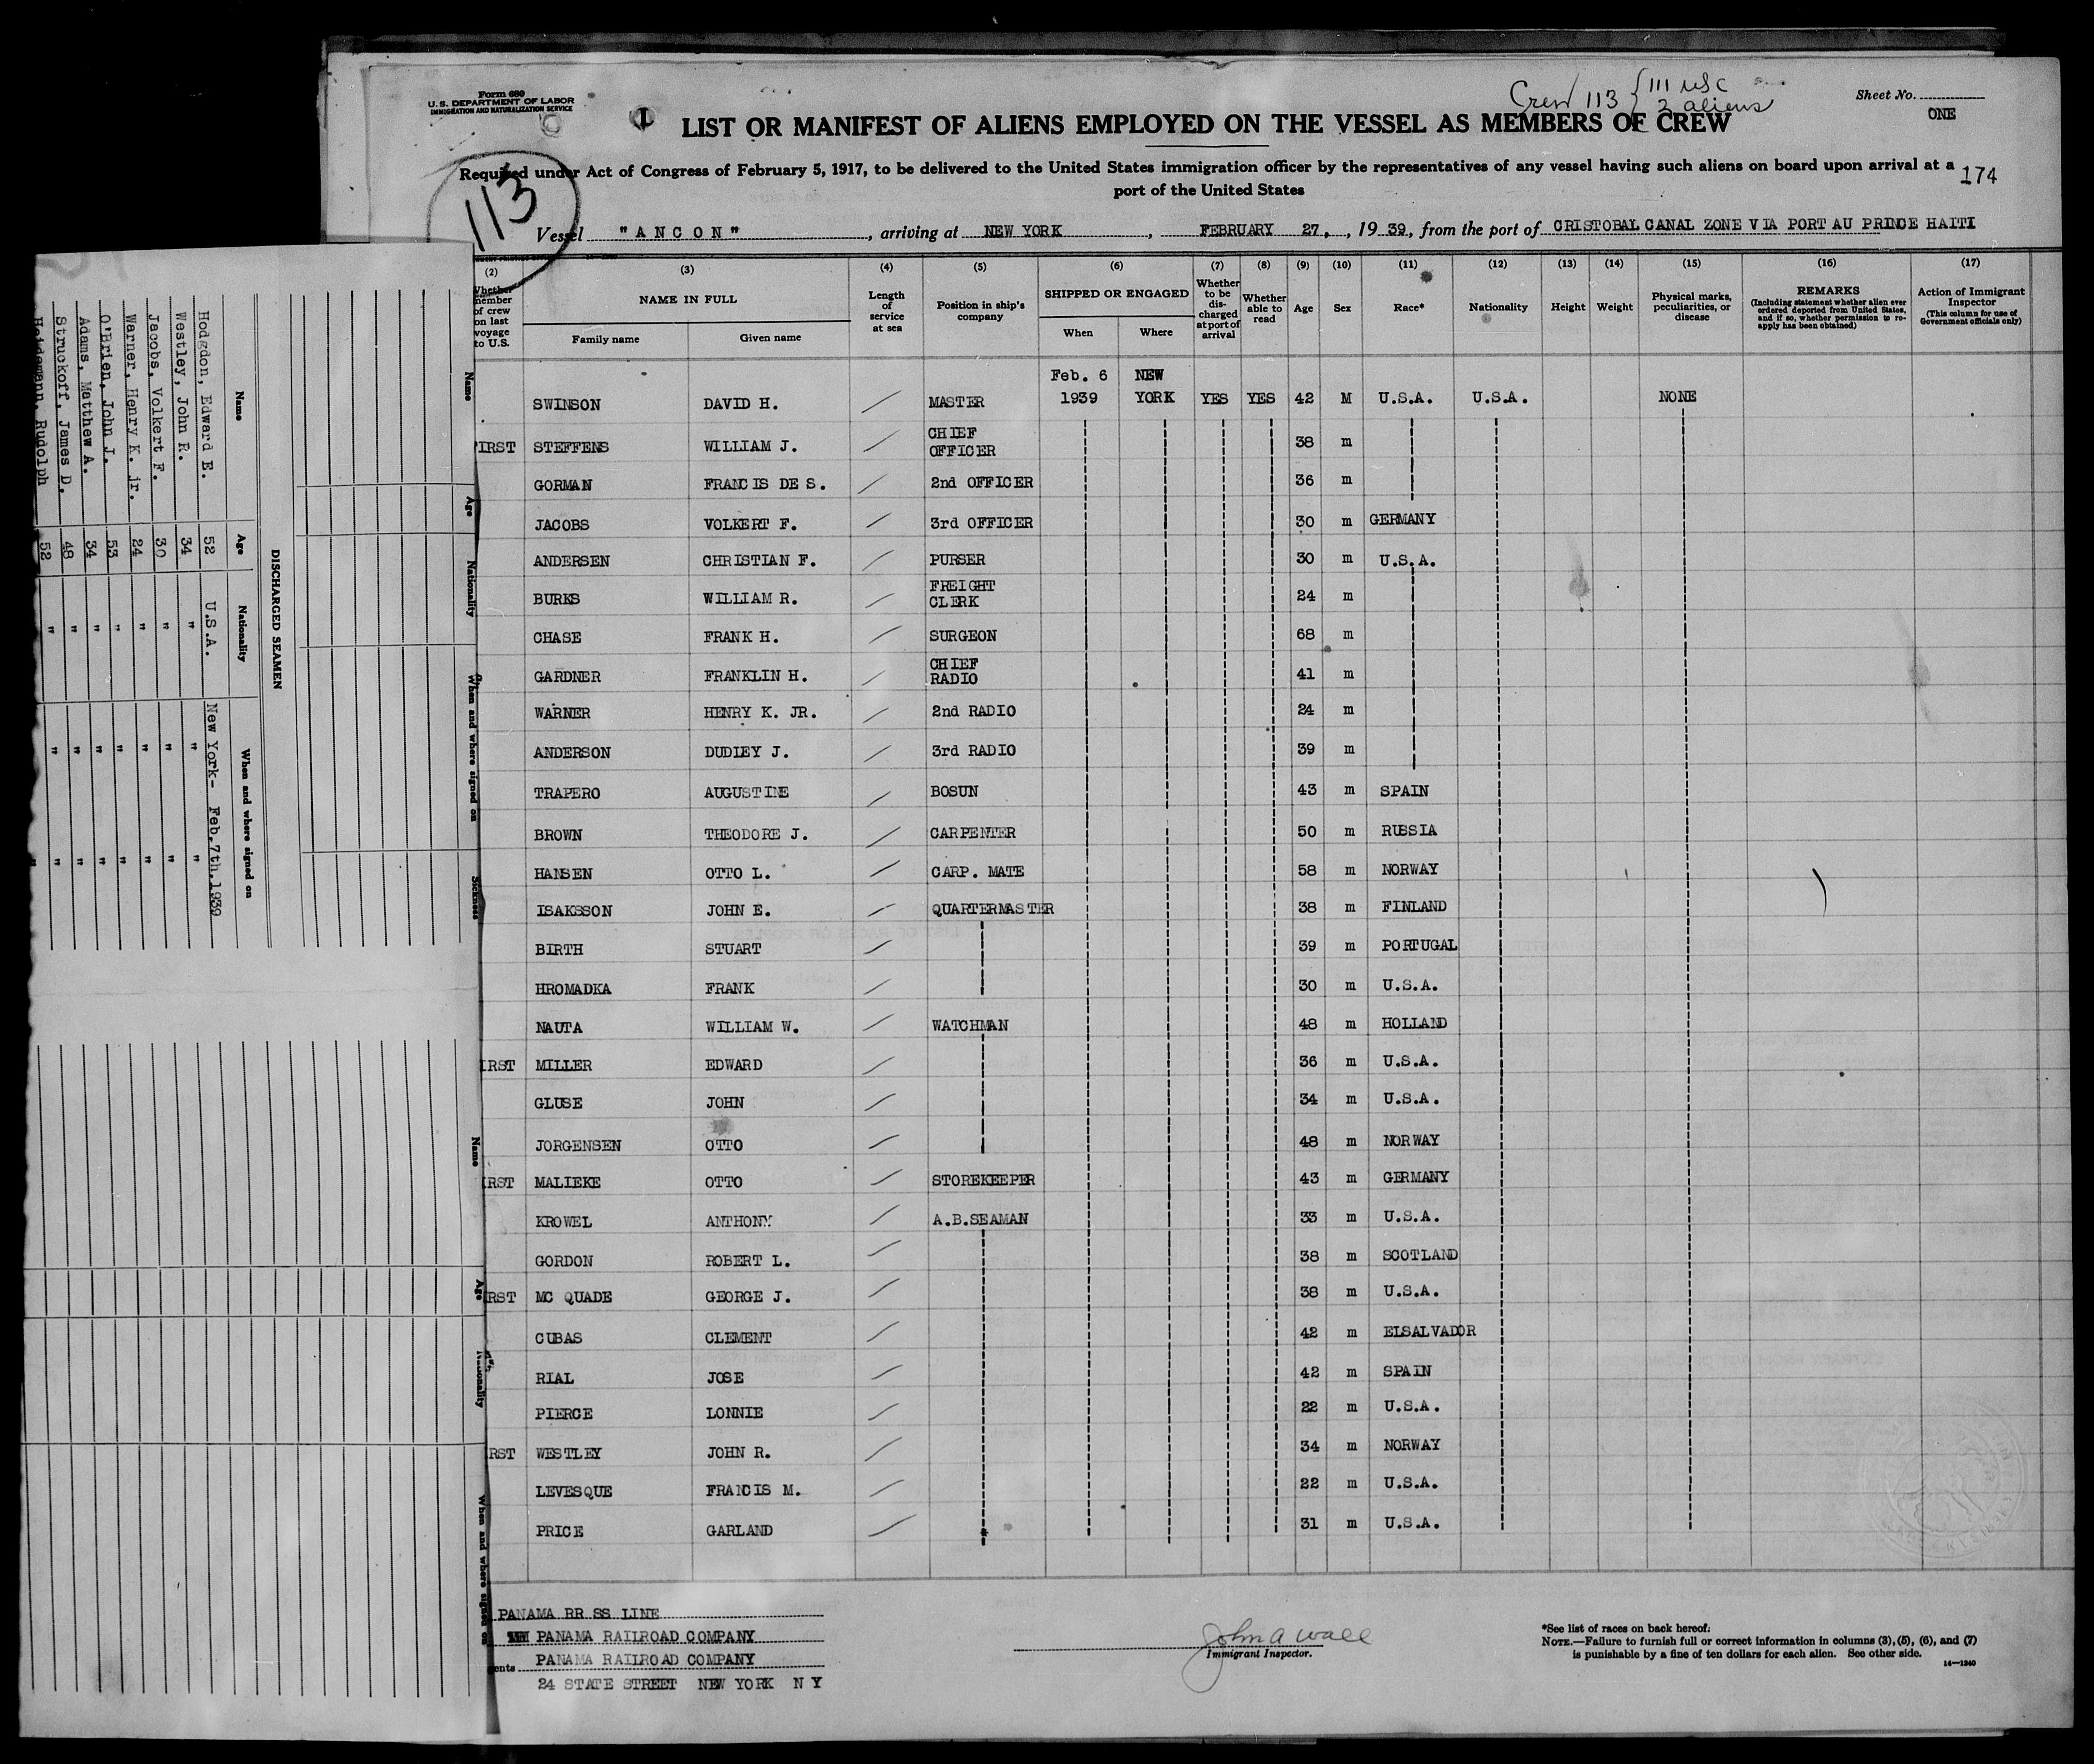 Form 680
U. S. DEPARTMENT OF LABOR
IMMIGRATION AND NATURALIZATION SERVICE
Crew 113 { 111 USC
2 aliens
Sheet No.
ONE
1
LIST OR MANIFEST OF ALIENS EMPLOYED ON THE VESSEL AS MEMBERS OF CREW
113
Required under Act of Congress of February 5, 1917, to be delivered to the United States immigration officer by the representatives of any vessel having such aliens on board upon arrival at a
port of the United States
174
Vessel "ANCON", arriving at NEW YORK, FEBRUARY 27, 1939, from the port of CRISTOBAL CANAL ZONE VIA PORT AU PRINCE HAITI
(2) (3) (4) (5) (6) (7) (8) (9) (10) (11) (12) (13) (14) (15) (16) (17)
Whether member of crew on last voyage to U.S.
NAME IN FULL
Family name Given name
Length of service at sea
Position in ship's company
SHIPPED OR ENGAGED
When Where
Whether to be discharged at port of arrival
Whether able to read
Age Sex Race* Nationality Height Weight
Physical marks, peculiarities, or disease
REMARKS
(Including statement whether alien ever ordered deported from United States, and if so, whether permission to re-apply has been obtained)
Action of Immigrant Inspector
(This column for use of Government officials only)
Feb. 6 NEW
SWINSON DAVID H. MASTER 1939 YORK YES YES 42 M U.S.A. U.S.A. NONE
IRST STEFFENS WILLIAM J. CHIEF OFFICER 38 m
GORMAN FRANCIS DE S. 2nd OFFICER 36 m
JACOBS VOLKERT F. 3rd OFFICER 30 m GERMANY
ANDERSEN CHRISTIAN F. PURSER 30 m U.S.A.
BURKS WILLIAM R. FREIGHT CLERK 24 m
CHASE FRANK H. SURGEON 68 m
GARDNER FRANKLIN H. CHIEF RADIO 41 m
WARNER HENRY K. JR. 2nd RADIO 24 m
ANDERSON DUDLEY J. 3rd RADIO 39 m
TRAPERO AUGUSTINE BOSUN 43 m SPAIN
BROWN THEODORE J. CARPENTER 50 m RUSSIA
HANSEN OTTO L. CARP. MATE 58 m NORWAY
ISAKSSON JOHN E. QUARTERMASTER 38 m FINLAND
BIRTH STUART 39 m PORTUGAL
HROMADKA FRANK 30 m U.S.A.
NAUTA WILLIAM W. WATCHMAN 48 m HOLLAND
IRST MILLER EDWARD 36 m U.S.A.
GLUSE JOHN 34 m U.S.A.
JORGENSEN OTTO 48 m NORWAY
IRST MALIEKE OTTO STOREKEEPER 43 m GERMANY
KROWEL ANTHONY A.B.SEAMAN 33 m U.S.A.
GORDON ROBERT L. 38 m SCOTLAND
IRST MC QUADE GEORGE J. 38 m U.S.A.
CUBAS CLEMENT 42 m ELSALVADOR
RIAL JOSE 42 m SPAIN
PIERCE LONNIE 22 m U.S.A.
RST WESTLEY JOHN R. 34 m NORWAY
LEVESQUE FRANCIS M. 22 m U.S.A.
PRICE GARLAND 31 m U.S.A.
PANAMA RR SS LINE
PANAMA RAILROAD COMPANY
ents PANAMA RAILROAD COMPANY
24 STATE STREET NEW YORK N Y
John A Wall
Immigrant Inspector.
*See list of races on back hereof.
NOTE.—Failure to furnish full or correct information in columns (3), (5), (6), and (7)
is punishable by a fine of ten dollars for each alien. See other side.
14—1240
DISCHARGED SEAMEN
Name Age Nationality When and where signed on
Hodgdon, Edward E. 52 U.S.A. New York- Feb.7th.1939
Westley, John R. 34 " " "
Jacobs, Volkert F. 30 " " "
Warner, Henry K. jr. 24 " " "
O'Brien, John J. 53 " " "
Adams, Matthew A. 34 " " "
Struckoff, James D. 48 " " "
Heidemann, Rudolph 52 " " "
Name Age Nationality When and where signed on Sickness
Name Age Nationality When and where signed on